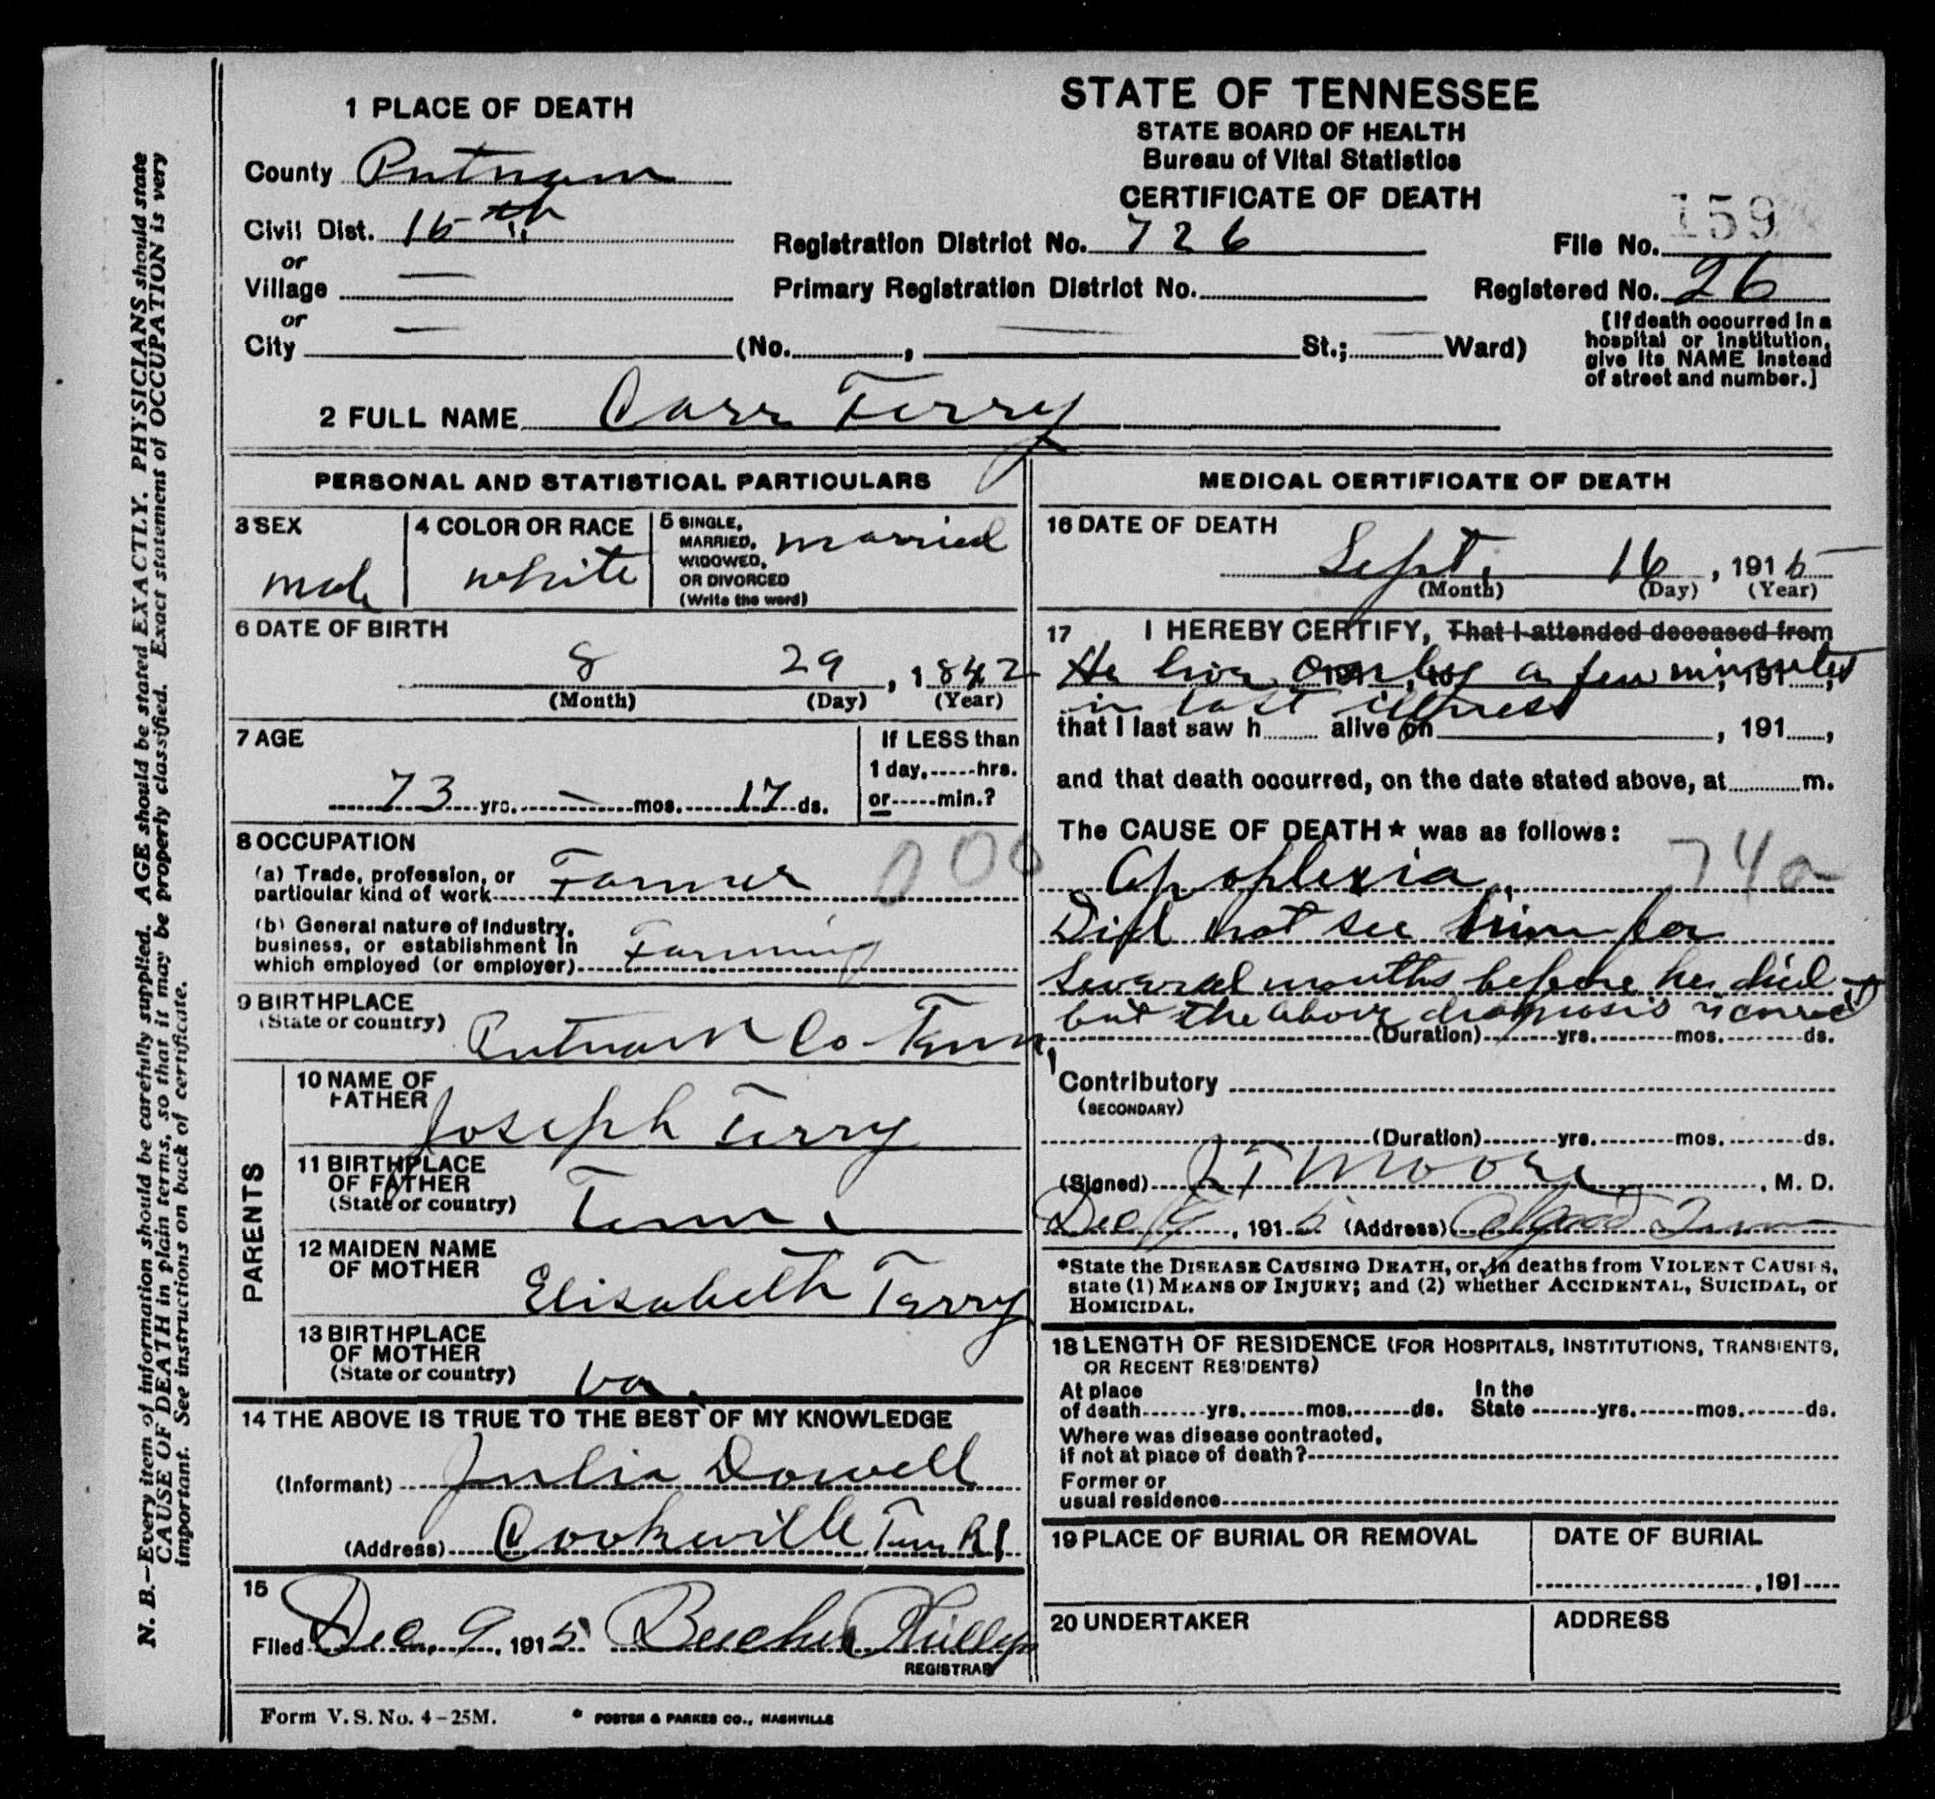 1 PLACE OF DEATH
County Putnam
Civil Dist. 15th
or
Village —
or
City — (No. , — St.; — Ward)
STATE OF TENNESSEE
STATE BOARD OF HEALTH
Bureau of Vital Statistics
CERTIFICATE OF DEATH
Registration District No. 726
Primary Registration District No.
File No. 159
Registered No. 26
[If death occurred in a
hospital or institution,
give its NAME instead
of street and number.]
2 FULL NAME Carr Terry
PERSONAL AND STATISTICAL PARTICULARS
3 SEX
male
4 COLOR OR RACE
white
5 SINGLE,
MARRIED,
WIDOWED,
OR DIVORCED
(Write the word)
married
6 DATE OF BIRTH
8 29, 1842
(Month) (Day) (Year)
7 AGE
73 yrs. — mos. 17 ds.
If LESS than
1 day, hrs.
or min.?
8 OCCUPATION
(a) Trade, profession, or
particular kind of work Farmer
000
(b) General nature of Industry,
business, or establishment in
which employed (or employer) Farming
9 BIRTHPLACE
(State or country)
Putnam Co Tenn
PARENTS
10 NAME OF
FATHER
Joseph Terry
11 BIRTHPLACE
OF FATHER
(State or country)
Tenn.
12 MAIDEN NAME
OF MOTHER
Elisabeth Terry
13 BIRTHPLACE
OF MOTHER
(State or country)
Va.
14 THE ABOVE IS TRUE TO THE BEST OF MY KNOWLEDGE
(Informant) Julia Dowell
(Address) Cookeville Tenn R1
15
Filed Dec. 9, 1915 Beecher
REGISTRAR
MEDICAL CERTIFICATE OF DEATH
16 DATE OF DEATH
Sept. 16, 1915
(Month) (Day) (Year)
17 I HEREBY CERTIFY, That I attended deceased from
He live only a few minutes
in last illness
that I last saw h alive on , 191 ,
and that death occurred, on the date stated above, at m.
The CAUSE OF DEATH* was as follows:
Apoplexia 74a
Did not see him for
several months before he died
but the above diagnosis is correct
(Duration) yrs. mos. ds.
Contributory
(SECONDARY)
(Duration) yrs. mos. ds.
(Signed) JT Moore, M. D.
Dec 9, 1915 (Address) Algood Tenn
*State the DISEASE CAUSING DEATH, or, in deaths from VIOLENT CAUSES,
state (1) MEANS OF INJURY; and (2) whether ACCIDENTAL, SUICIDAL, or
HOMICIDAL.
18 LENGTH OF RESIDENCE (FOR HOSPITALS, INSTITUTIONS, TRANSIENTS,
OR RECENT RESIDENTS)
At place
of death yrs. mos. ds.
In the
State yrs. mos. ds.
Where was disease contracted,
if not at place of death?
Former or
usual residence
19 PLACE OF BURIAL OR REMOVAL
DATE OF BURIAL
, 191
20 UNDERTAKER
ADDRESS
Form V. S. No. 4-25M.
* FOSTER & PARKES CO., NASHVILLE
N. B.—Every item of information should be carefully supplied. AGE should be stated EXACTLY. PHYSICIANS should state
CAUSE OF DEATH in plain terms, so that it may be properly classified. Exact statement of OCCUPATION is very
important. See instructions on back of certificate.